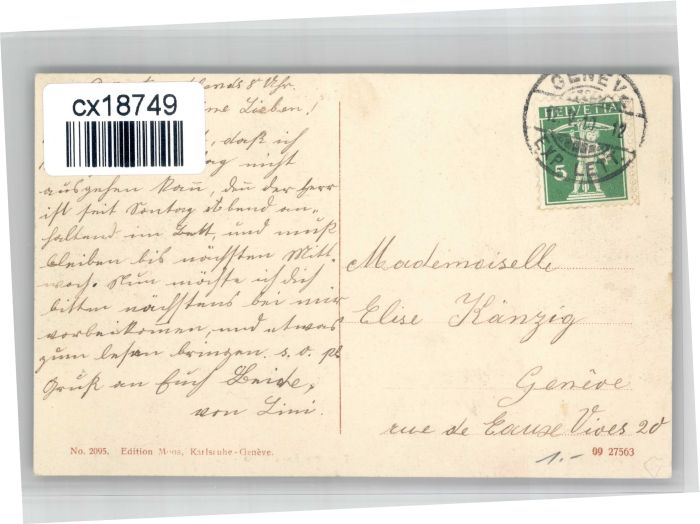 cx18749
abends 8 Uhr.
Lieben!
daß ich
nicht
ausgehen kan, den der Herr
ist seit Sontag Abend an„
haltend im Bett, und muß
bleiben bis nächsten Mitt„
woch. Nun möchte ich dich
bitten nächstens bei mir
vorbeikomen, und etwas
zum lesen bringen. s. v. pl
Gruß an Euch Beide,
von Lini.
GENÈVE
EXP. LETT.
HELVETIA
5
Mademoiselle
Elise Känzig
Genève
rue de Eaux Vives 20
1.-
No. 2095. Edition Moos, Karlsruhe-Genève.
09 27563